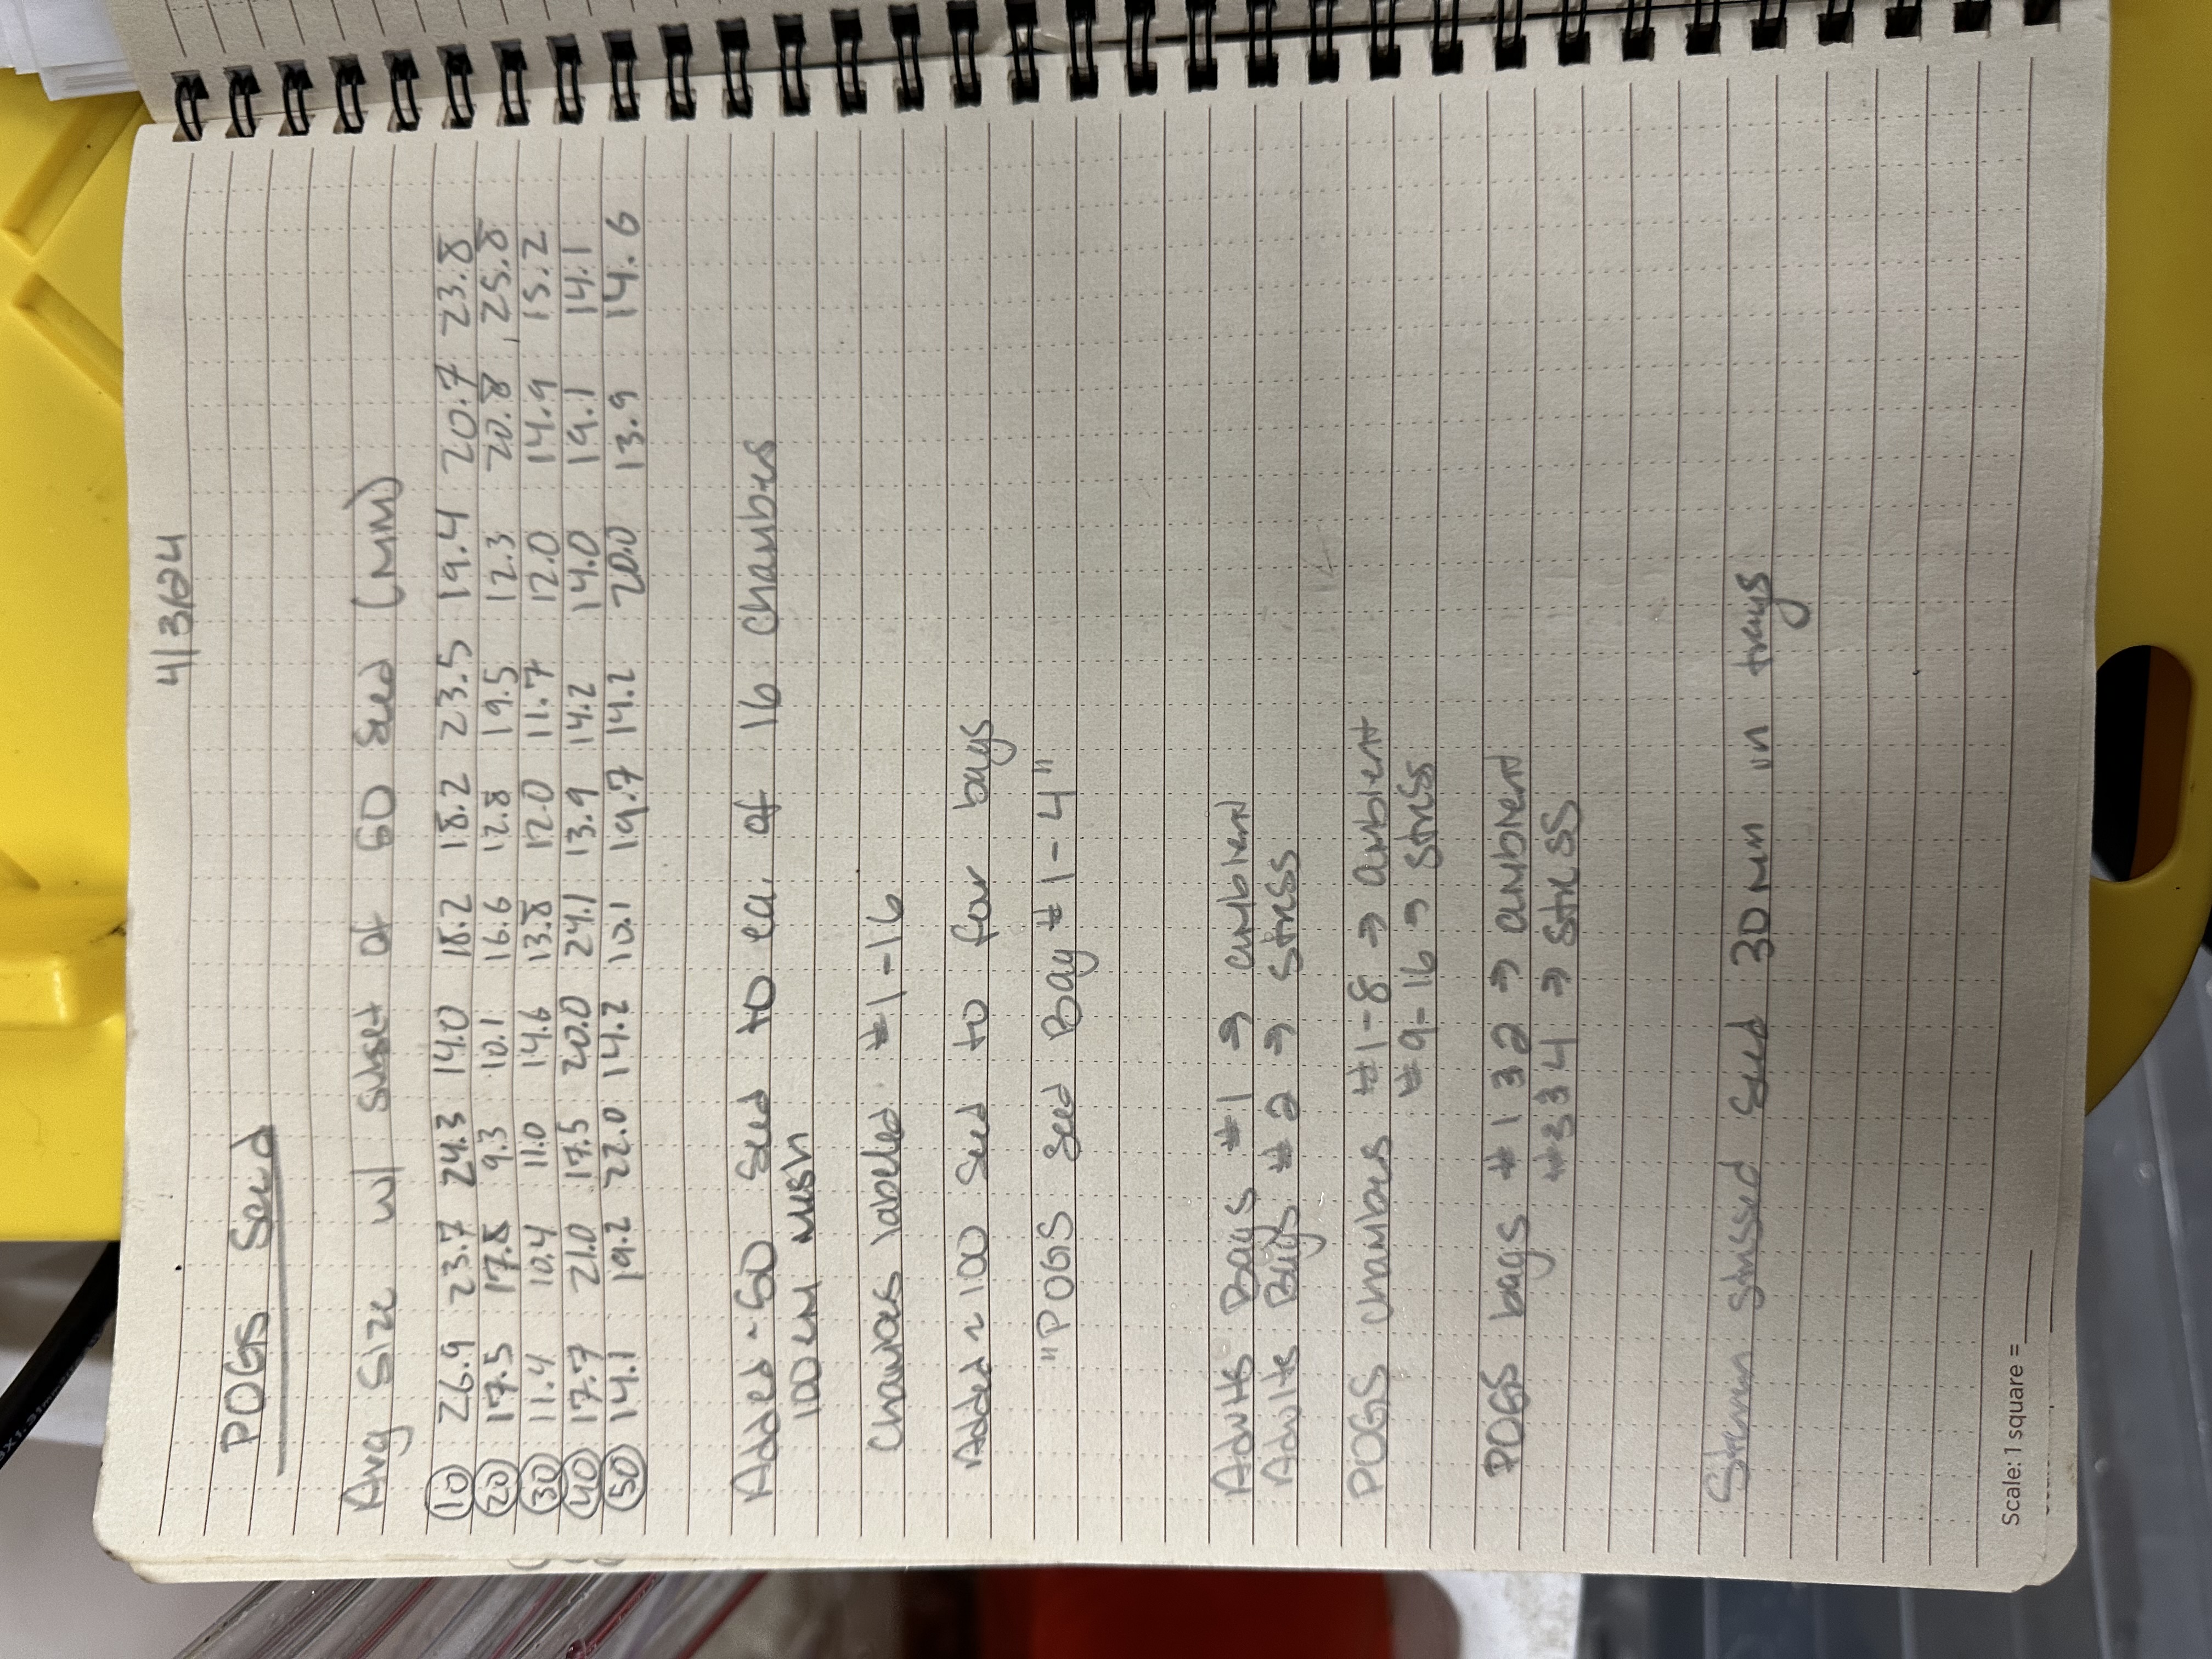 4/3/24
POGS Seed
Avg Size w/ subset of 50 Seed (MM)
10 26.9 23.7 24.3 14.0 18.2 18.2 23.5 19.4 20.7 23.8
20 17.5 17.8 9.3 10.1 16.6 12.8 19.5 12.3 20.8 25.8
30 11.4 10.4 11.0 14.6 13.8 12.0 11.7 12.0 14.9 15.2
40 17.7 21.0 17.5 20.0 24.1 13.9 14.2 14.0 19.1 14.1
50 14.1 19.2 22.0 14.2 10.1 19.7 14.2 20.0 13.9 14.6
Added ~50 Seed to ea. of 16 Chambers
mesh
Chambers labeled #1-16
Added ~100 Seed to four bags
"POGS Seed Bag #1-4"
Adults Bags #1 → ambient
Adults Bags #2 → stress
POGS chambers #1-8 → ambient
#9-16 → stress
POGS bags #1 & 2 → ambient
#3 & 4 → stress
Steven stressed seed 30mm in trays
Scale: 1 square =______